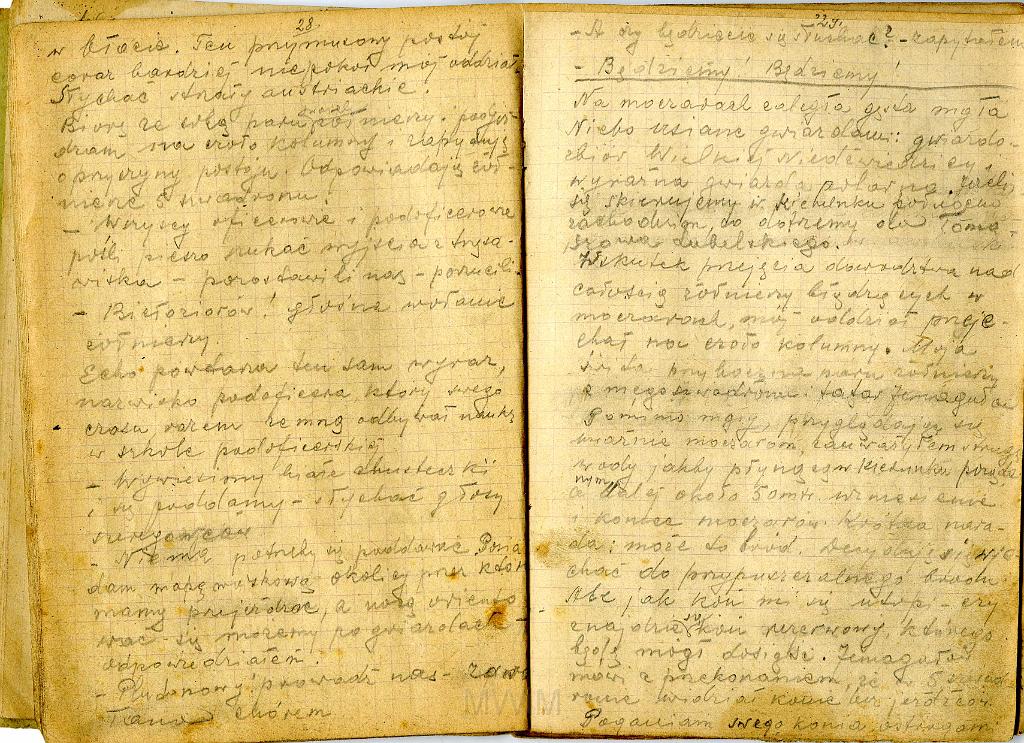 28.
w błocie. Ten przymusowy postój
coraz bardziej niepokoi mój oddział.
Słychać strzały austriackie.
Biorę ze sobą paru żołnierzy, podjeż-
dżam na czoło kolumny i zapytuję
o przyczyny postoju. Odpowiadają żoł-
nierze 5 szwadronu:
- Wszyscy oficerowie i podoficerowie
pośli pieszo szukać wyjścia z trzęsa-
wiska - pozostawili nas - porzucili.
- Biełoziorów! głośne wołanie
żołnierzy.
Echo powtarza ten sam wyraz,
nazwisko podoficera, który swego
czasu razem ze mną odbywał naukę
w szkole podoficerskiej
- Wywiesimy białe chusteczki
i się poddamy - słychać głosy
szeregowców
- Niema potrzeby się poddawać. Posia
dam mapę wojskową okolicy przez którą
mamy przejeżdżać, a nocą oriento
wać się możemy po gwiazdach
odpowiedziałem.
- Plutonowy! prowadź nas -
chórem
29.
- A czy będziecie się słuchać? - zapytałem
- Będziemy! Będziemy!
Na moczarach zaległa gęsta mgła
Niebo usiane gwiazdami: gwiazdo-
zbiór Wielkiej Niedźwiedzicy,
wyraźna gwiazda polarna. Jeżeli
się skierujemy w kierunku północno
zachodnim, to dotrzemy do Toma-
szowa Lubelskiego.
Wskutek przejęcia dowództwa nad
całością żołnierzy będących w
moczarach, mój oddział przeje-
chał na czoło kolumny. Moja
świta przyboczna paru żołnierzy
z mego szwadronu i tatar
Pomimo mgły, przyglądając się
uważnie moczarom, zauważyłem smugę
wody jakby płynącej w kierunku
a dalej około 50 mtr. wzniesienie
i koniec moczarów. Krótka nara-
da: może to bród. Decyduję się wje
chać do przypuszczalnego brodu
Ale jak koń mi się utopi - czy
znajdzie się koń rezerwowy, którego
będę mógł dosiąść.
mówi z przekonaniem, że w 5 szwad
ronie widział konie bez jeźdźców.
Poganiam swego konia ostrogami
MWM